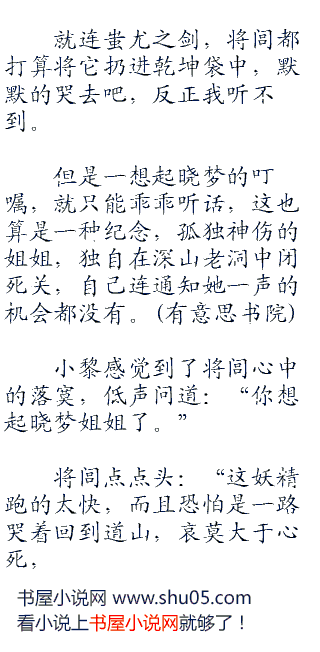 就连蚩尤之剑，将闾都
打算将它扔进乾坤袋中，默
默的哭去吧，反正我听不
到。
但是一想起晓梦的叮
嘱，就只能乖乖听话，这也
算是一种纪念，孤独神伤的
姐姐，独自在深山老洞中闭
死关，自己连通知她一声的
机会都没有。(有意思书院)
小黎感觉到了将闾心中
的落寞，低声问道：“你想
起晓梦姐姐了。”
将闾点点头：“这妖精
跑的太快，而且恐怕是一路
哭着回到道山，哀莫大于心
死，
书屋小说网 www.shu05.com
看小说上书屋小说网就够了！